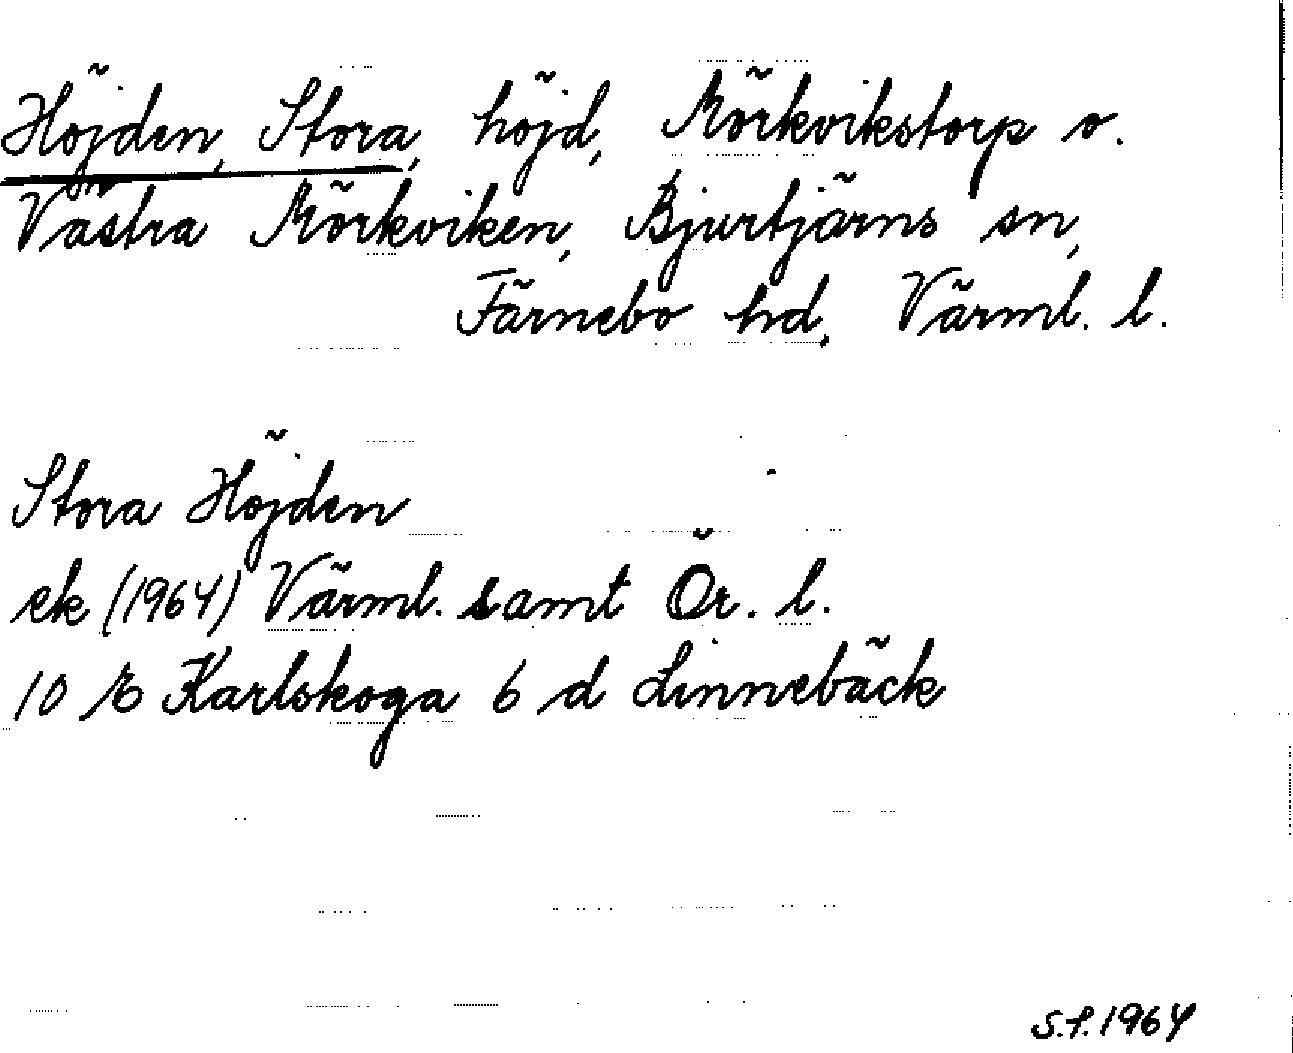 Höjden, Stora, höjd, Mörkvikstorp o.
Västra Mörkviken, Bjurtjärns sn,
Färnebo hd, Värml. l.
Stora Höjden
ek (1964) Värml. samt Ör. l.
10 E Karlskoga 6 d Linnebäck
S.f. 1964